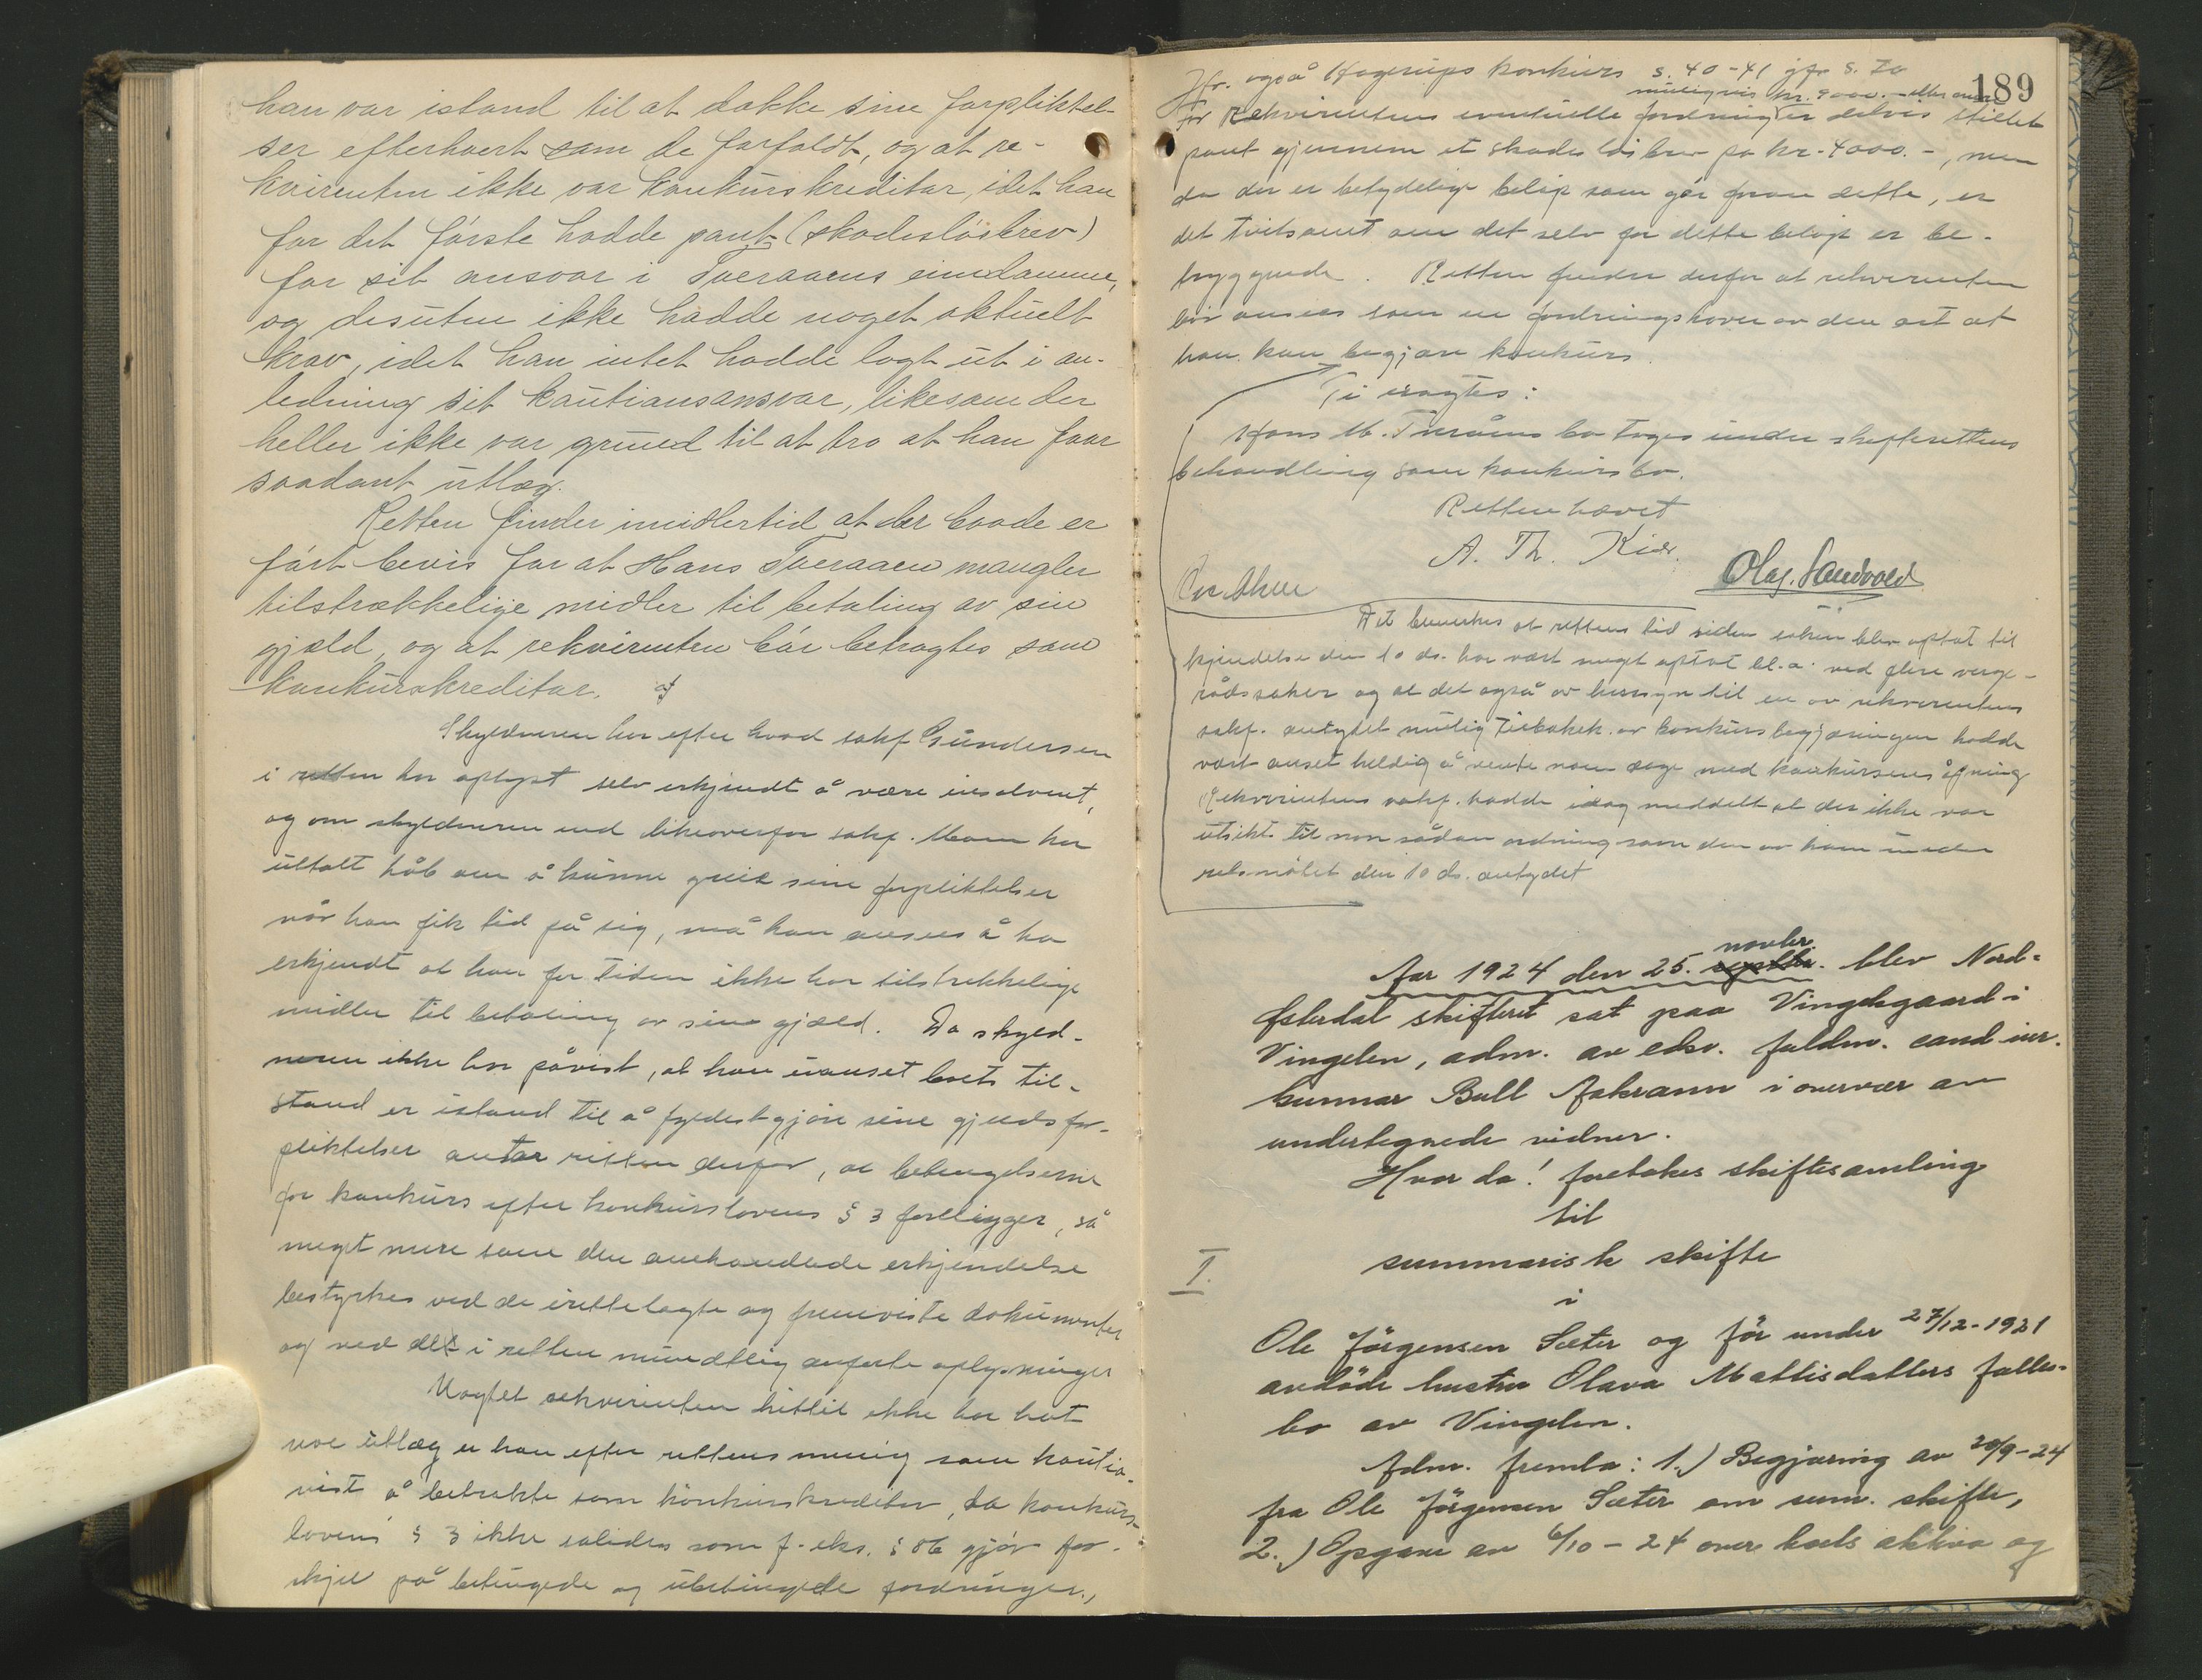 han var istand til at dække sine forpliktel-
ser efterhvert som de forfaldt, og at re-
kvirenten ikke var konkurskreditor, idet han
for det første hadde pant (skadesløsbrev)
for sit ansvar i Tveraaens eiendomme,
og desuten ikke hadde noget aktuelt
krav, idet han intet hadde lagt ut i an-
ledning sit kautionsansvar, likesom der
heller ikke var grund til at tro at han faar
saadant utlæg.
Retten finder imidlertid at der baade er
ført bevis for at Hans Tveraaen mangler
tilstrækkelige midler til betaling av sin
gjæld, og at rekvirenten bør betragtes som
konkurskreditor.
Skyldneren har efter hvad sakf. Gundersen
i retten har oplyst selv erkjendt å være insolvent,
og om skyldneren end likeoverfor sakf. Moum har
uttalt håb om å kunne greie sine forpliktelser
når han fik tid på sig, må han ansees å ha
erkjendt at han for tiden ikke har tilstrekkelige
midler til betaling av sin gjæld. Da skyld-
neren ikke har påvist, at han uanset boets til-
stand er istand til å fyldestgjøre sine gjeldsfor-
pliktelser antar retten derfor, at betingelserne
for konkurs efter konkurslovens § 3 foreligger, så
meget mere som den omhandlede erkjendelse
bestyrkes ved de irettelagte og fremviste dokumenter
og ved det i retten mundtlig anførte oplysninger
Uagtet rekvirenten hittil ikke har hat
noe utlæg er han efter rettens mening som kautio-
nist å betrakte som konkurskreditor, da konkurs-
lovens § 3 ikke således som f. eks. § 86 gjør for-
skjel på betingede og ubetingede fordringer.,
189
Jfr. også Hagerups konkurs s. 40-41 jfr s. 70
muligvis kr. 9000.- eller mer
For Rekvirentens eventuelle fordring er delvis stillet
pant gjennem et skadesløsbrev på kr. 4000.-, men
da der er betydelige beløp som går foran dette, er
det tvilsomt om det selv for dette beløp er be-
tryggende. Retten finder derfor at rekvirenten
bør ansees som en fordringshaver av den art at
han kan begjære konkurs.
Ti eragtes:
Hans M. Tveråens bo tages under skifterettens
behandling som konkursbo.
Retten hævet
A. Th. Kiær.
Olaf Sandvold
Det bemerkes at rettens tid siden saken blev optat til
kjendelse den 10 ds. har vært meget optat bl.a. ved flere verge-
rådssaker og at det også av hensyn til en av rekvirentens
sakf. antydet mulig tilbakek. av konkursbegjæringen hadde
vært anset heldig å vente noen dage med konkursens åpning
Rekvirentens sakf. hadde idag meddelt at der ikke var
utsikt til noen sådan ordning som den av ham under
retsmøtet den 10 ds. antydet
Aar 1924 den 25. septbr. novbr. blev Nord-
Østerdal skifteret sat paa Vingelsgaard i
Vingelen, adm. av edsv. fuldm. cand. jur.
Gunnar Bull Aakrann i overvær av
undertegnede vidner.
Hvor da! foretokes skiftesamling
til
I.
summarisk skifte
i
Ole Jørgensen Sæter og før under 27/12-1921
avdøde hustru Olava Mattisdatters fælles-
bo av Vingelen.
Adm. fremla: 1.) Begjæring av 20/9-24
fra Ole Jørgensen Sæter om sum. skifte,
2.) Opgave av 6/10-24 over boets aktiva og